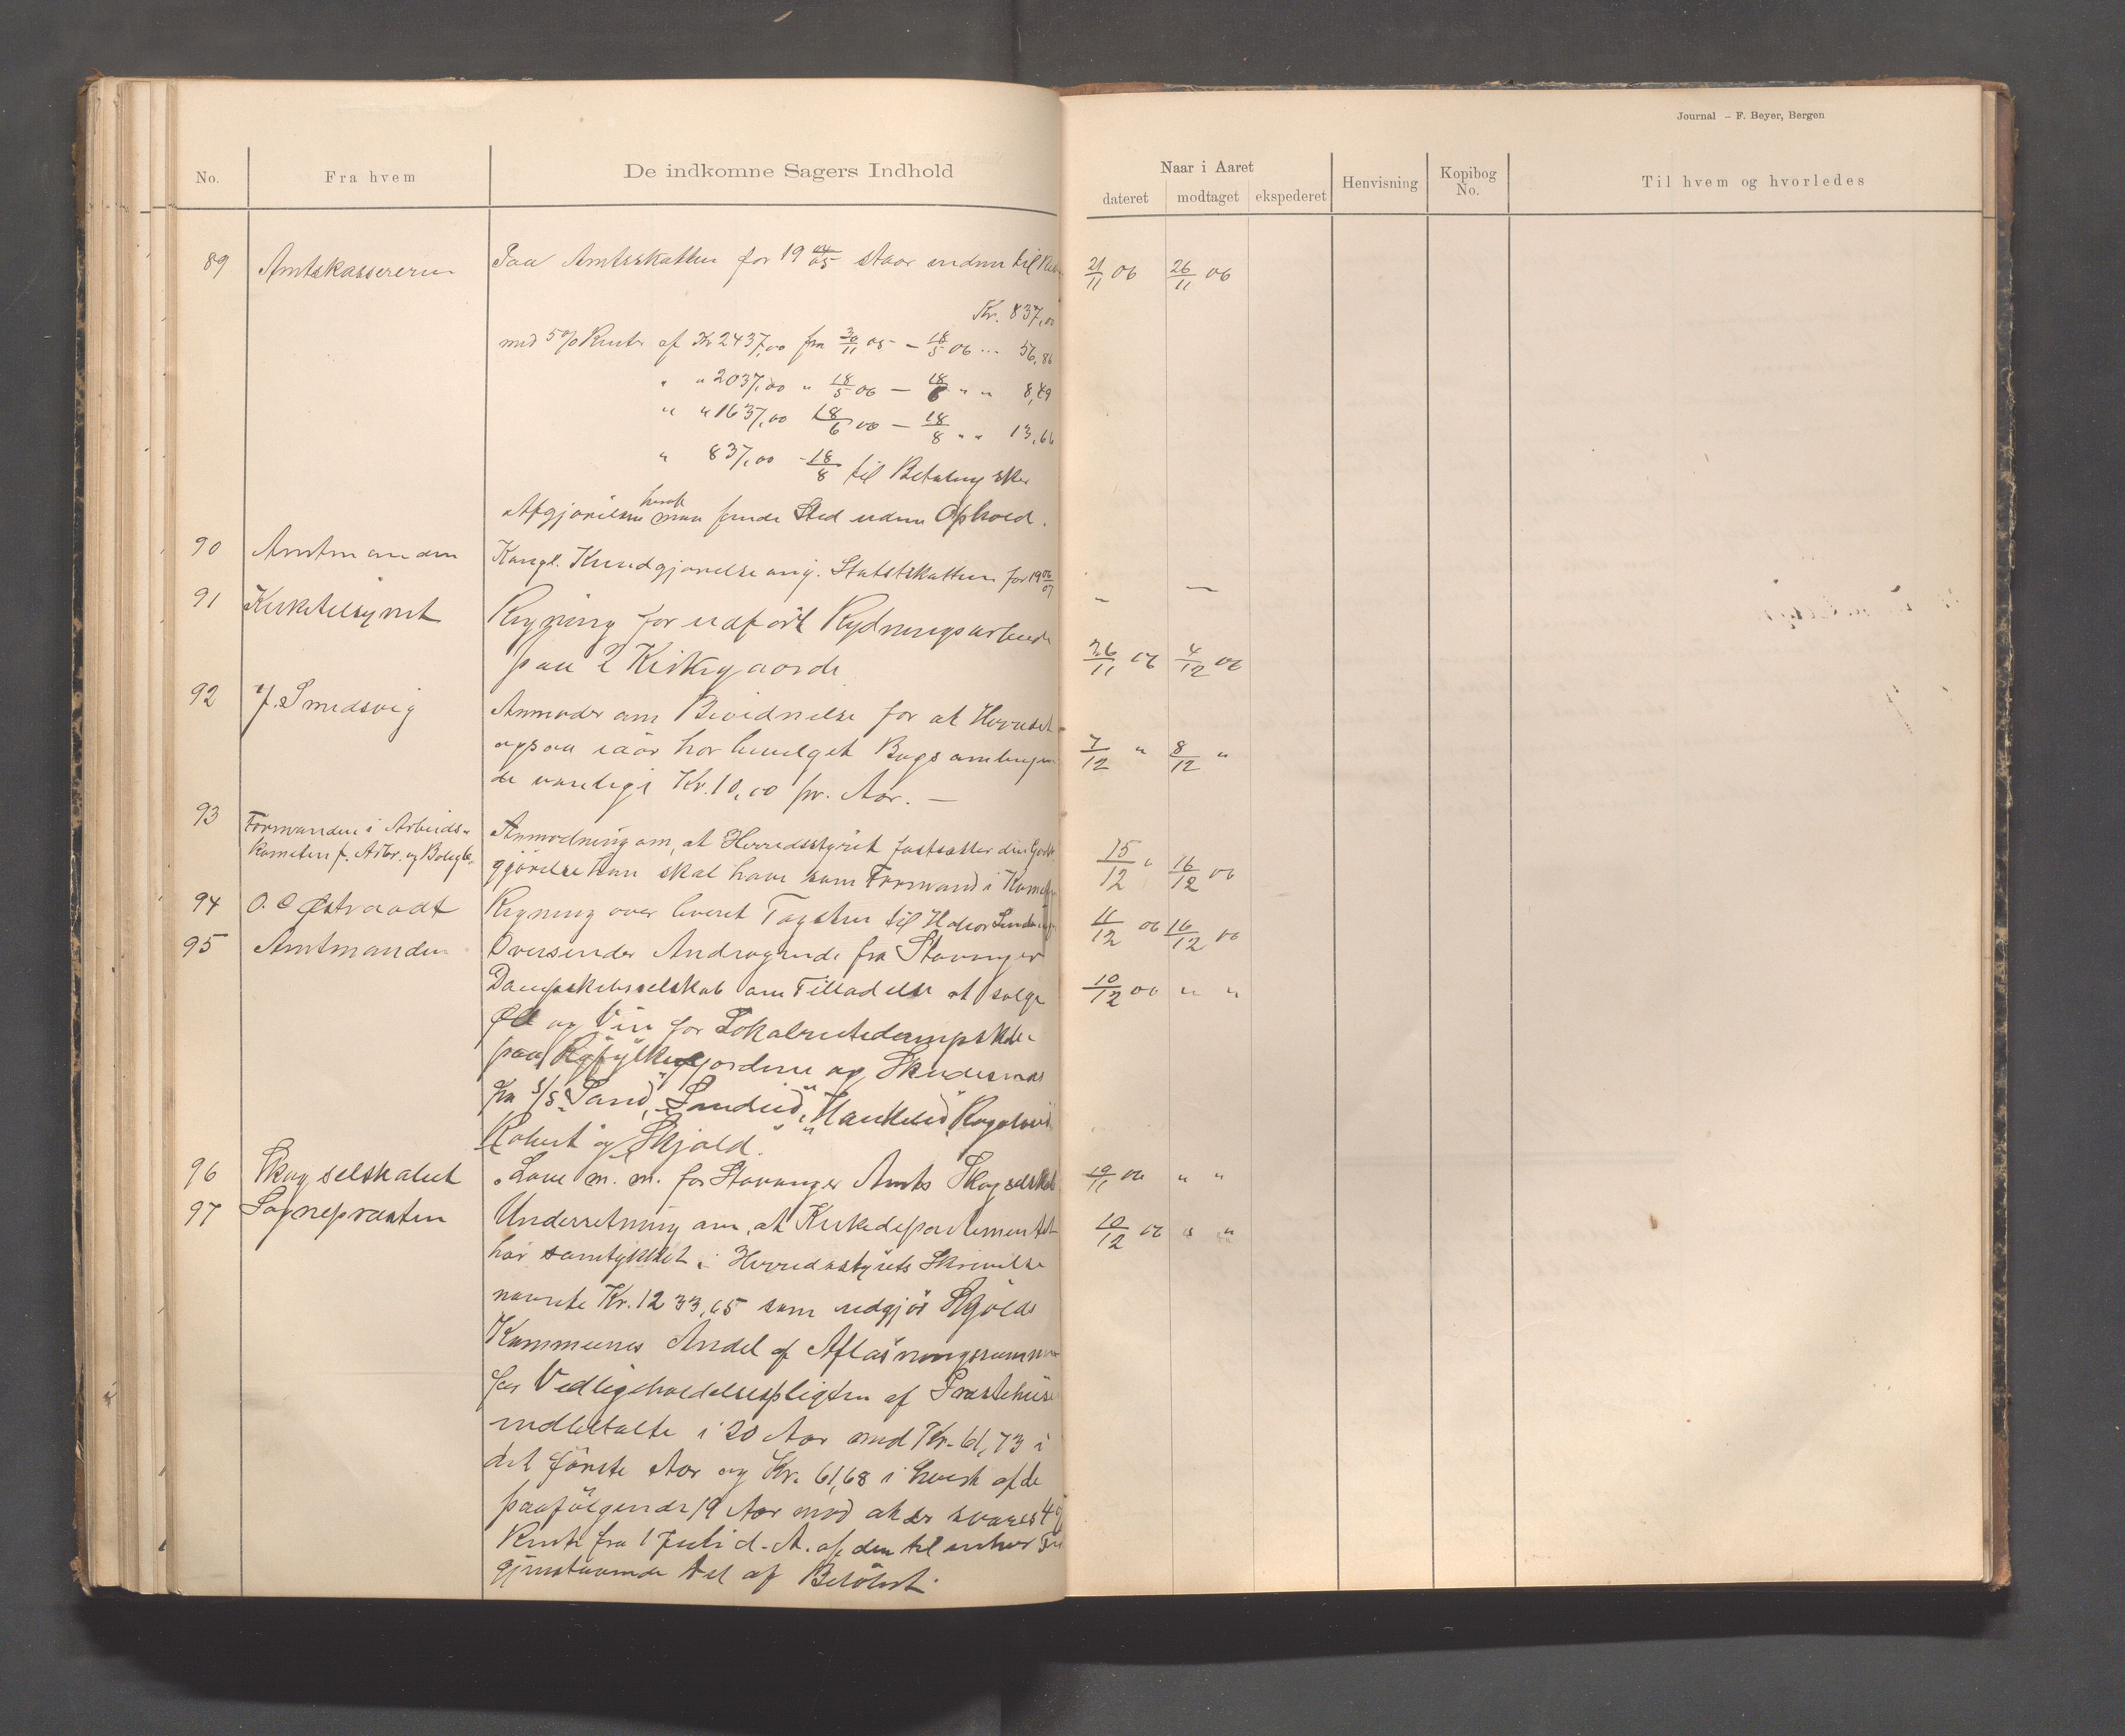 Journal – F. Beyer, Bergen
No. Fra hvem De indkomne Sagers Indhold Naar i Aaret Henvisning Kopibog No. Til hvem og hvorledes
dateret modtaget ekspederet
89 Amtskassereren Paa Amtsskatten for 19 04/05 staar endnu til 21/11 06 26/11 06
Kr. 837,00
med 5% Renter af Kr 2437,00 fra 30/11 05 – 18/5 06 ... 56,86
" " 2037,00 " 18/5 06 – 18/6 " " 8,49
" " 1637,00 18/6 06 – 18/8 " " 13,66
" 837,00 - 18/8 til Betaling sker
Afgjørelsen heraf maa finde Sted uden Ophold.
90 Amtmanden Kongl. Kundgjørelse ang. Statsskatten for 19 06/07 – –
91 Kirketilsynet Regning for udført Rydningsarbeide
paa 2 Kirkegaarde 26/11 06 4/12 06
92 J. Smedsvig Anmoder om Bevidnelse for at Herredet
ogsaa iaar har bevilget Bogsamlingen 7/12 " 8/12 "
de vanlige Kr. 10,00 pr. Aar. –
93 Formanden i Arbeids-
Kometen f. Arbr. og Boligb. Anmodning om, at Herredsstyret fastsætter den Godt-
gjørelse han skal have som Formand i Kometen 15/12 " 16/12 06
94 O. C Østraadt Regning over leveret Tagsten til 11/12 06 16/12 06
95 Amtmanden Oversender Andragende fra Stavanger
Dampskibsselskab om Tilladelse at sælge 10/12 06 " "
Øl og Vin for Lokalrutedampskibe
paa Ryfylkefjordene og Skudesnæs
fra S/S "Sand", "Sandeid", "Haukelid",
Robert" og "Skjold."
96 Skogselskabet "Love m. m. for Stavanger Amts Skogselskab 19/11 06 " "
97 Sognepræsten Underretning om, at Kirkedepartementet 10/12 06 " "
har samtykket i Herredsstyrets Skrivelse
nævnte Kr. 1233,65 som udgjør Skjolds
Kommunes Andel af Afløsningssummen
for Vedligeholdelsespligten af Præstehuse
indbetalte i 20 Aar med Kr. 61,73 i
det første Aar og Kr. 61,68 i hvert af de
paafølgende 19 Aar mod at der svares 4 %
Rente fra 1 Juli d. A. af den til enhver Tid
gjenstaaende Del af Beløbet.